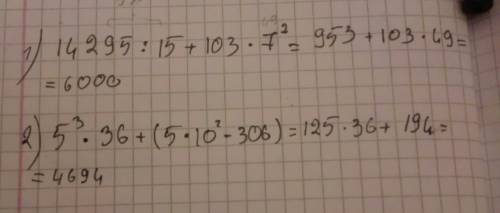 1) 14295 : 15 + 103 · 7² = 953 + 103 · 49 =
= 6000
2) 5³ · 36 + (5 · 10² - 306) = 125 · 36 + 194 =
= 4694